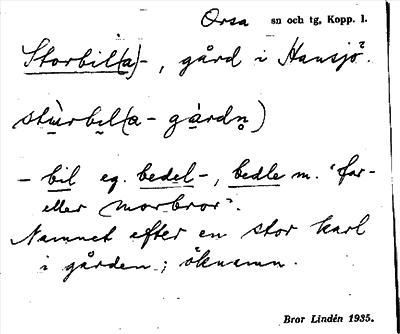 Orsa sn och tg, Kopp. l.
Storbil(a)-, gård i Hansjö?.
stùrbil(a- gàrdn)
- bil eg. bedel-, bedle m. "far-
eller morbror".
Namnet efter en stor karl
i gården; öknamn.
Bror Lindén 1935.